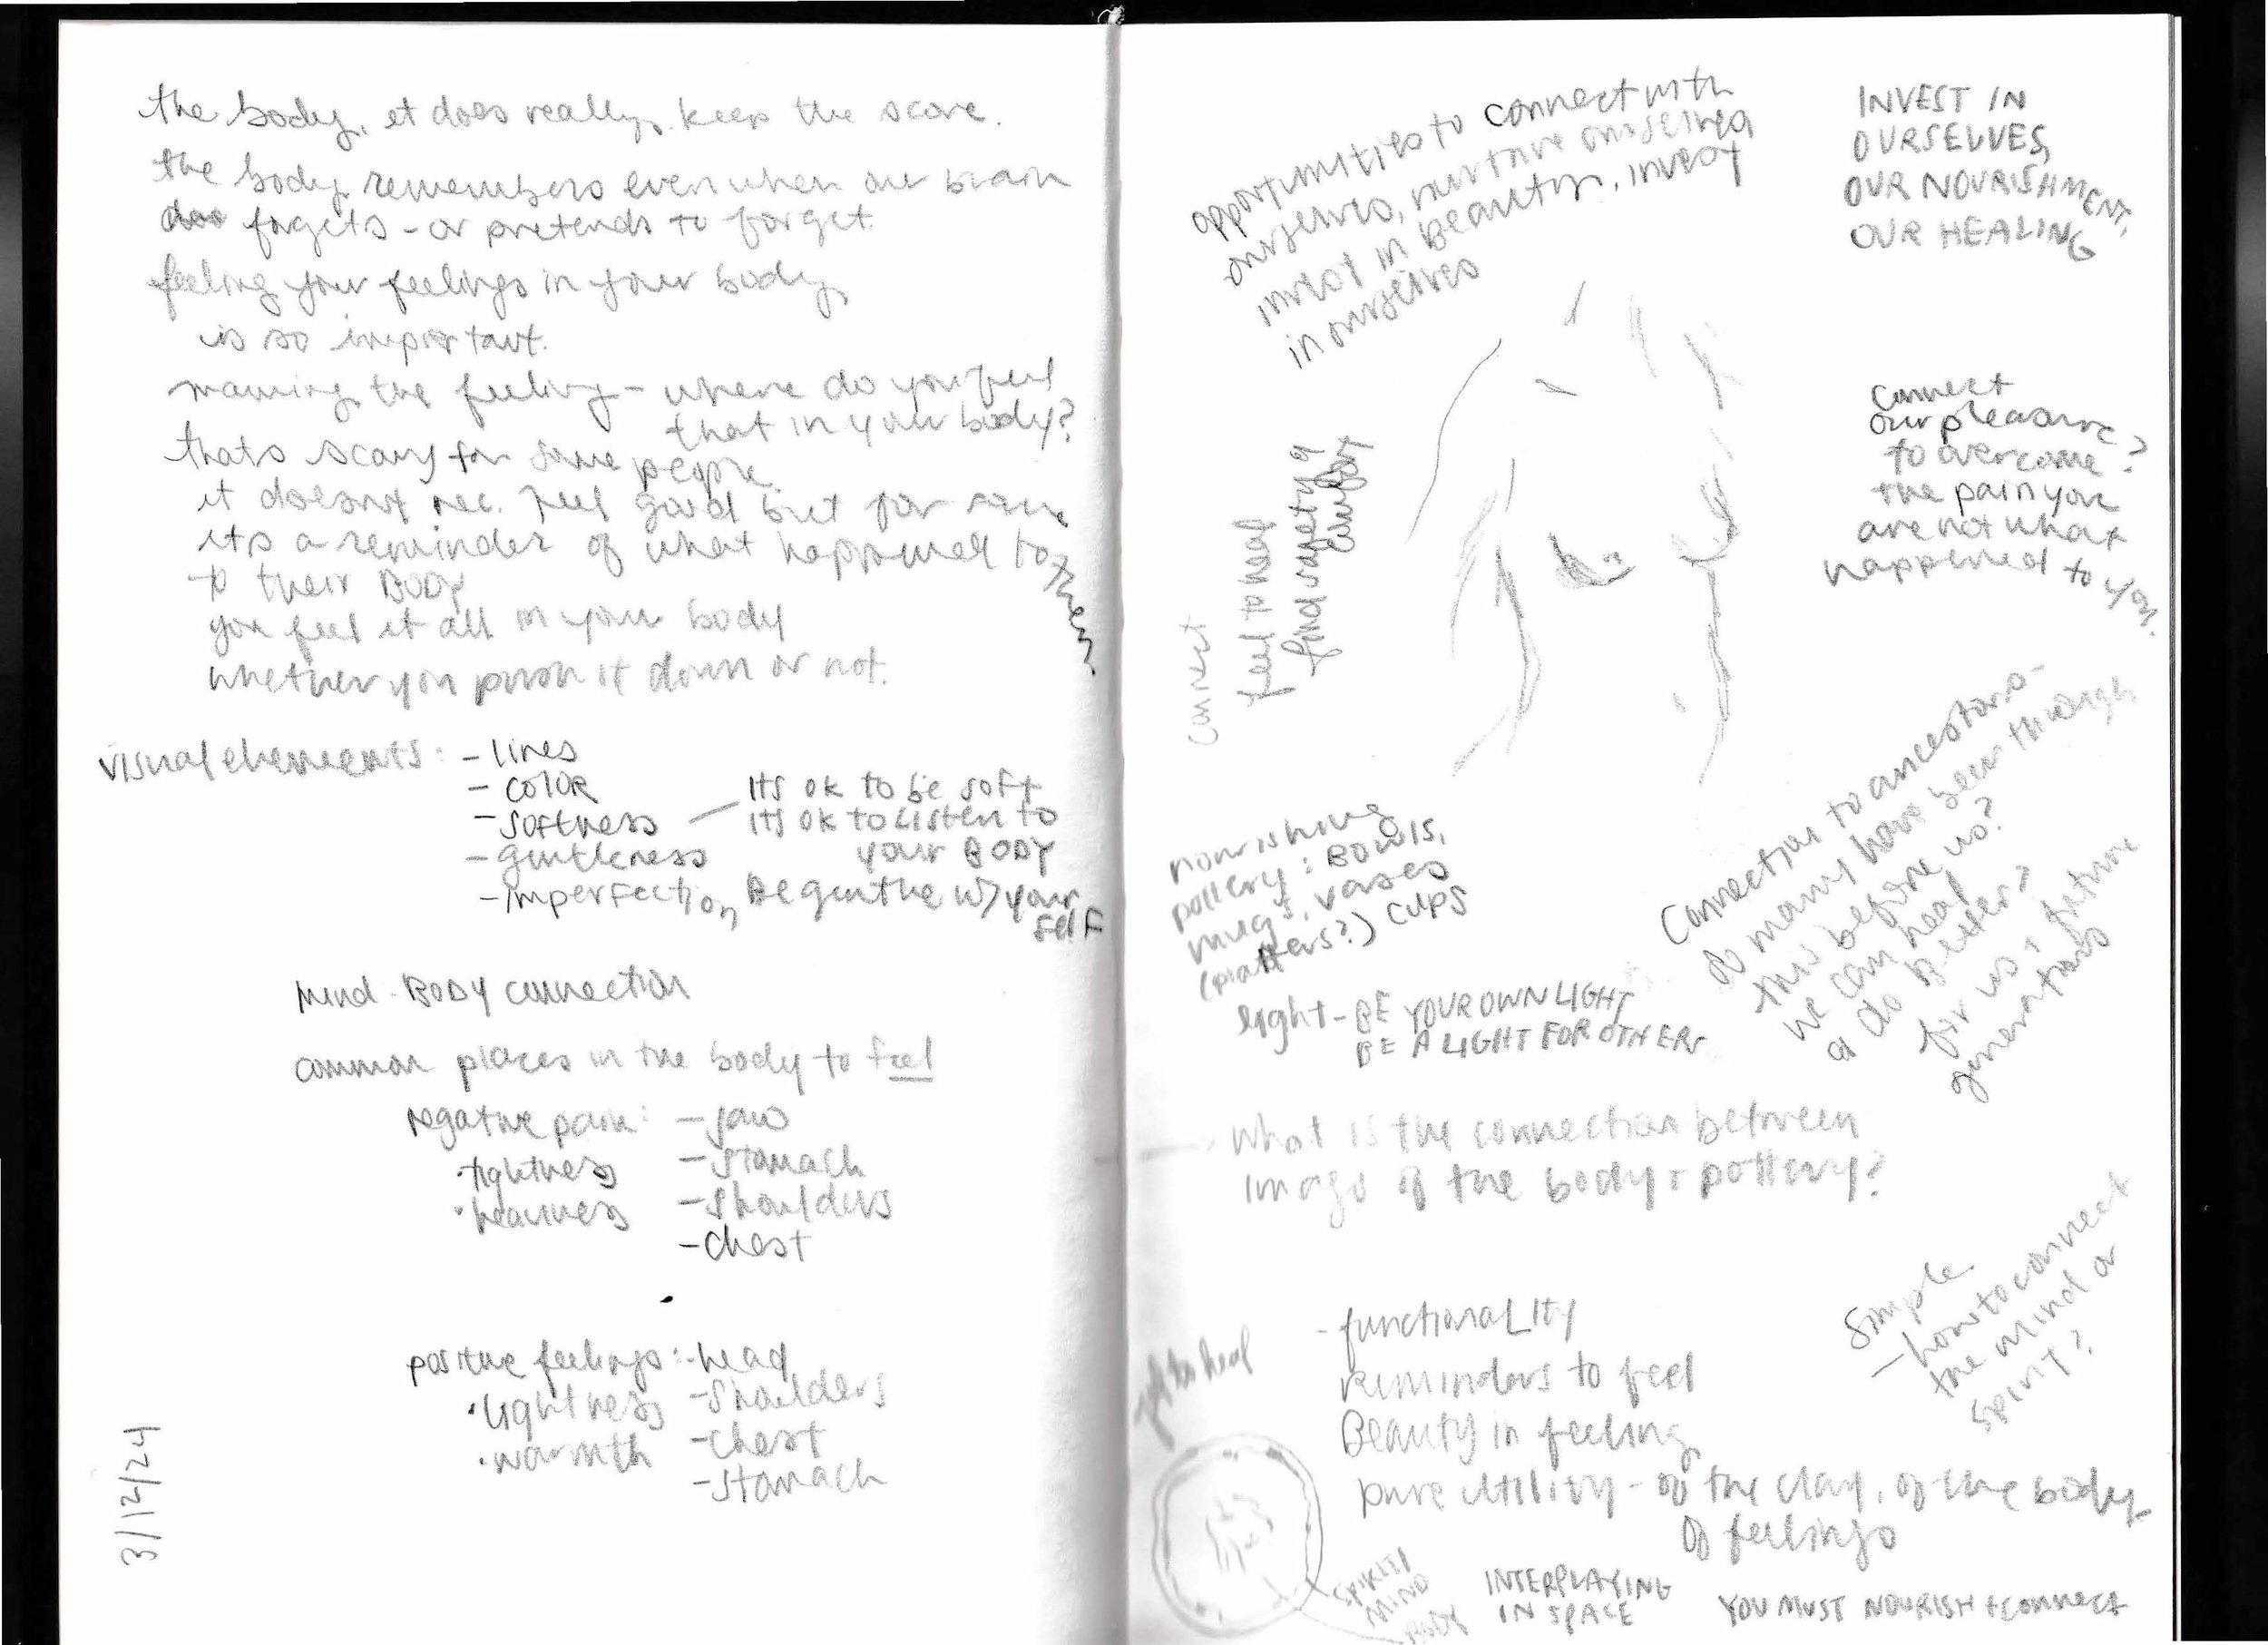 the body, it does really keep the score.
the body remembers even when our brain
does forgets - or pretends to forget.
feeling your feelings in your body
is so important.
naming the feeling - where do you feel
that in your body?
thats scary for some people
it doesnt nec. feel good but for some
its a reminder of what happened to them
to their BODY
you feel it all in your body
whether you push it down or not.
visual elements: - lines
- color
- softness — its ok to be soft
its ok to listen to
your BODY
- gentleness
- imperfection, Be gentle w/ your
self
mind-BODY connection
common places in the body to feel
negative pain: - jaw
• tightness - stomach
• heaviness - shoulders
- chest
positive feelings: - head
• lightness - shoulders
• warmth - chest
- stomach
3/12/24
opportunities to connect with
ourselves, nurture ourselves
invest in Beauty, invest
in ourselves
INVEST IN
OURSELVES,
OUR NOURISHMENT,
OUR HEALING
connect
our pleasure?
to overcome?
the pain you
are not what
happened to you.
connect
feel to heal
find safety &
comfort
nourishing
pottery: Bowls,
mugs, vases
(platters?) cups
light - BE YOUR OWN LIGHT
BE A LIGHT FOR OTHERS
Connection to ancestors -
so many have been through
this before us?
we can heal
& do better?
for us & future
generations
What is the connection between
image of the body & pottery?
Simple
- how to connect
the mind &
spirit?
- functionaLity
reminders to feel
Beauty in feeling
pure utility - of the clay, of the body
of feelings
feel to heal
SPIRIT
MIND
BODY
INTERPLAYING
IN SPACE
YOU MUST NOURISH + connect